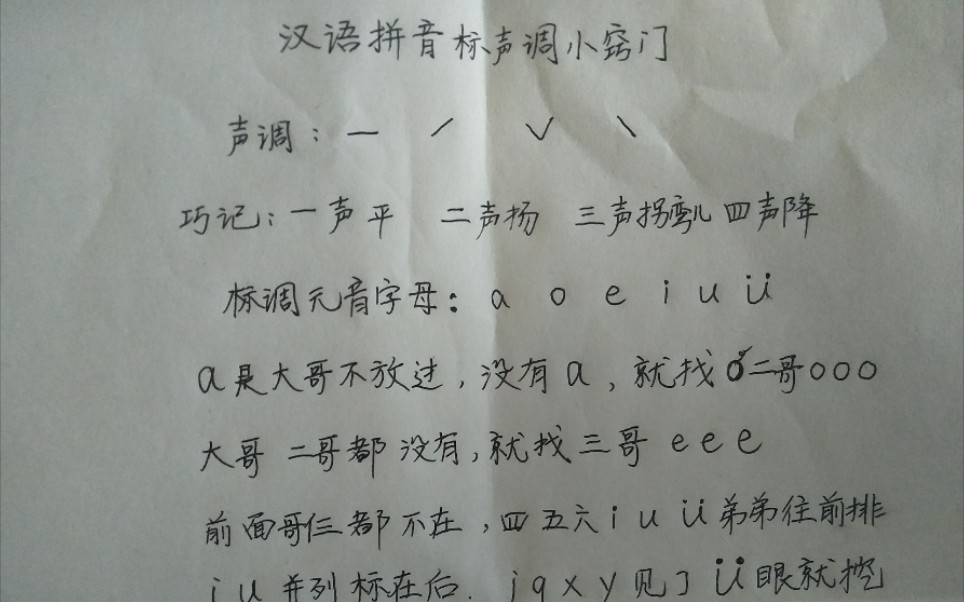 汉语拼音标声调小窍门
声调：一 ˊ ˇ ˋ
巧记：一声平 二声扬 三声拐弯儿 四声降
标调元音字母：a o e i u ü
a是大哥不放过，没有a，就找二哥ooo
大哥 二哥都没有，就找三哥 eee
前面哥仨都不在，四五六 i u ü 弟弟往前排
i u 并列标在后. j q x y 见了 ü 眼就挖